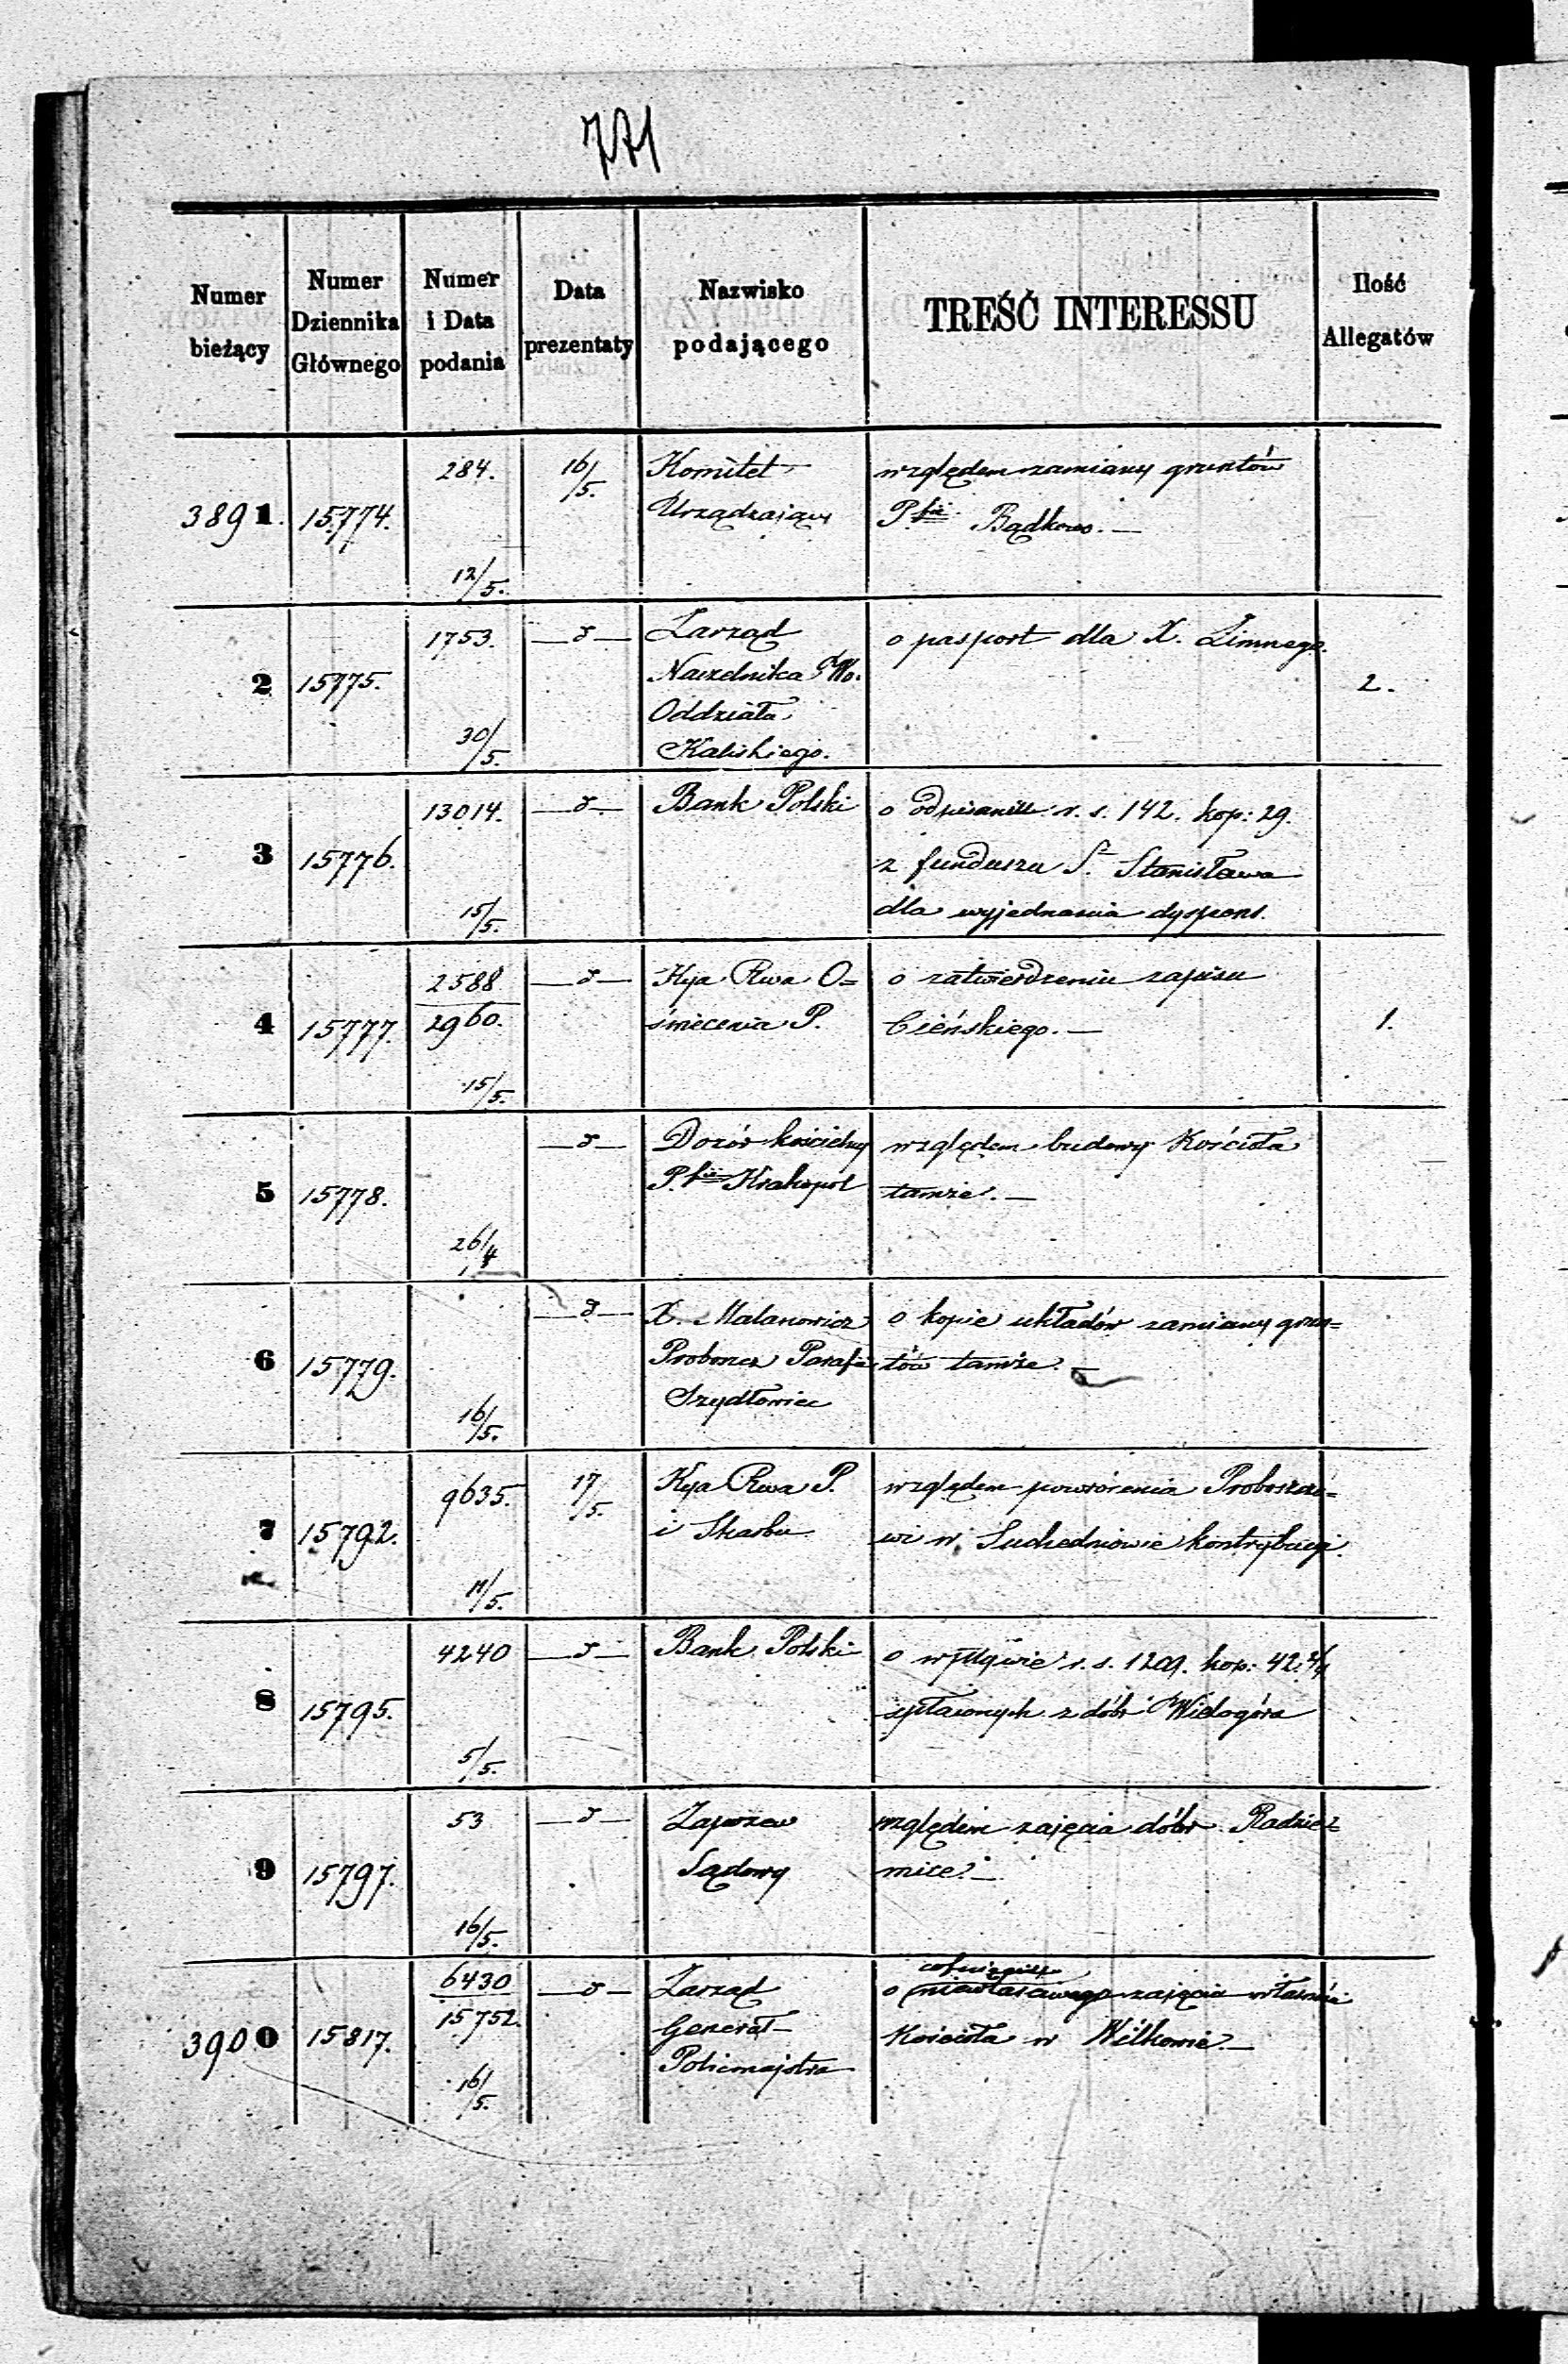 771
Numer bieżący
Numer Dziennika Głównego
Numer i Data podania
Data prezentaty
Nazwisko podającego
TREŚĆ INTERESSU
Ilość Allegatów
3891. 15774. 284. 12/5. 16/5. Komitet względem zamiany gruntów
Urządzający P.fii Bądkowo. —
2 15775. 1753. 30/5. —d— Zarząd o pasport dla X. Zimnego. 2.
Naczelnika
Oddziału
Kaliskiego.
3 15776. 13014. 15/5. —d— Bank Polski o odpisanie r. s. 142. kop: 29.
z funduszu S. Stanisława
dla wyjednania dyspens.
4 15777. 2588 2960. 15/5. —d— Kya Rwa O= o zatwierdzeniu zapisu 1.
świecenia P. Cieńskiego. —
5 15778. 26/4 —d— Dozór kościelny względem budowy Kościoła
P.fii Krakopol tamże. —
6 15779. 16/5. —d— X. Malanowicz o kopie układów zamiany grun=
Proboszcz Parafii tów tamże.
Szydłowiec
7 15792. 9635. 11/5. 17/5. Kya Rwa P. względem powrócenia Proboszczo=
i Skarbu wi w Suchedniowie kontrybucyi.
8 15795. 4240 5/5. —d— Bank Polski o wpływie r. s. 1209. kop: 42.
spłaconych z dóbr Wielogóra
9 15797. 53 16/5. —d— Zapozew względem zajęcia dóbr Radzie=
Sądowy mice. —
3900 15817. 6430 15752. 16/5. —d— Zarząd o niewłaściwego zajęcia
Generał Kościoła w Wilkowie. —
Policmajstra